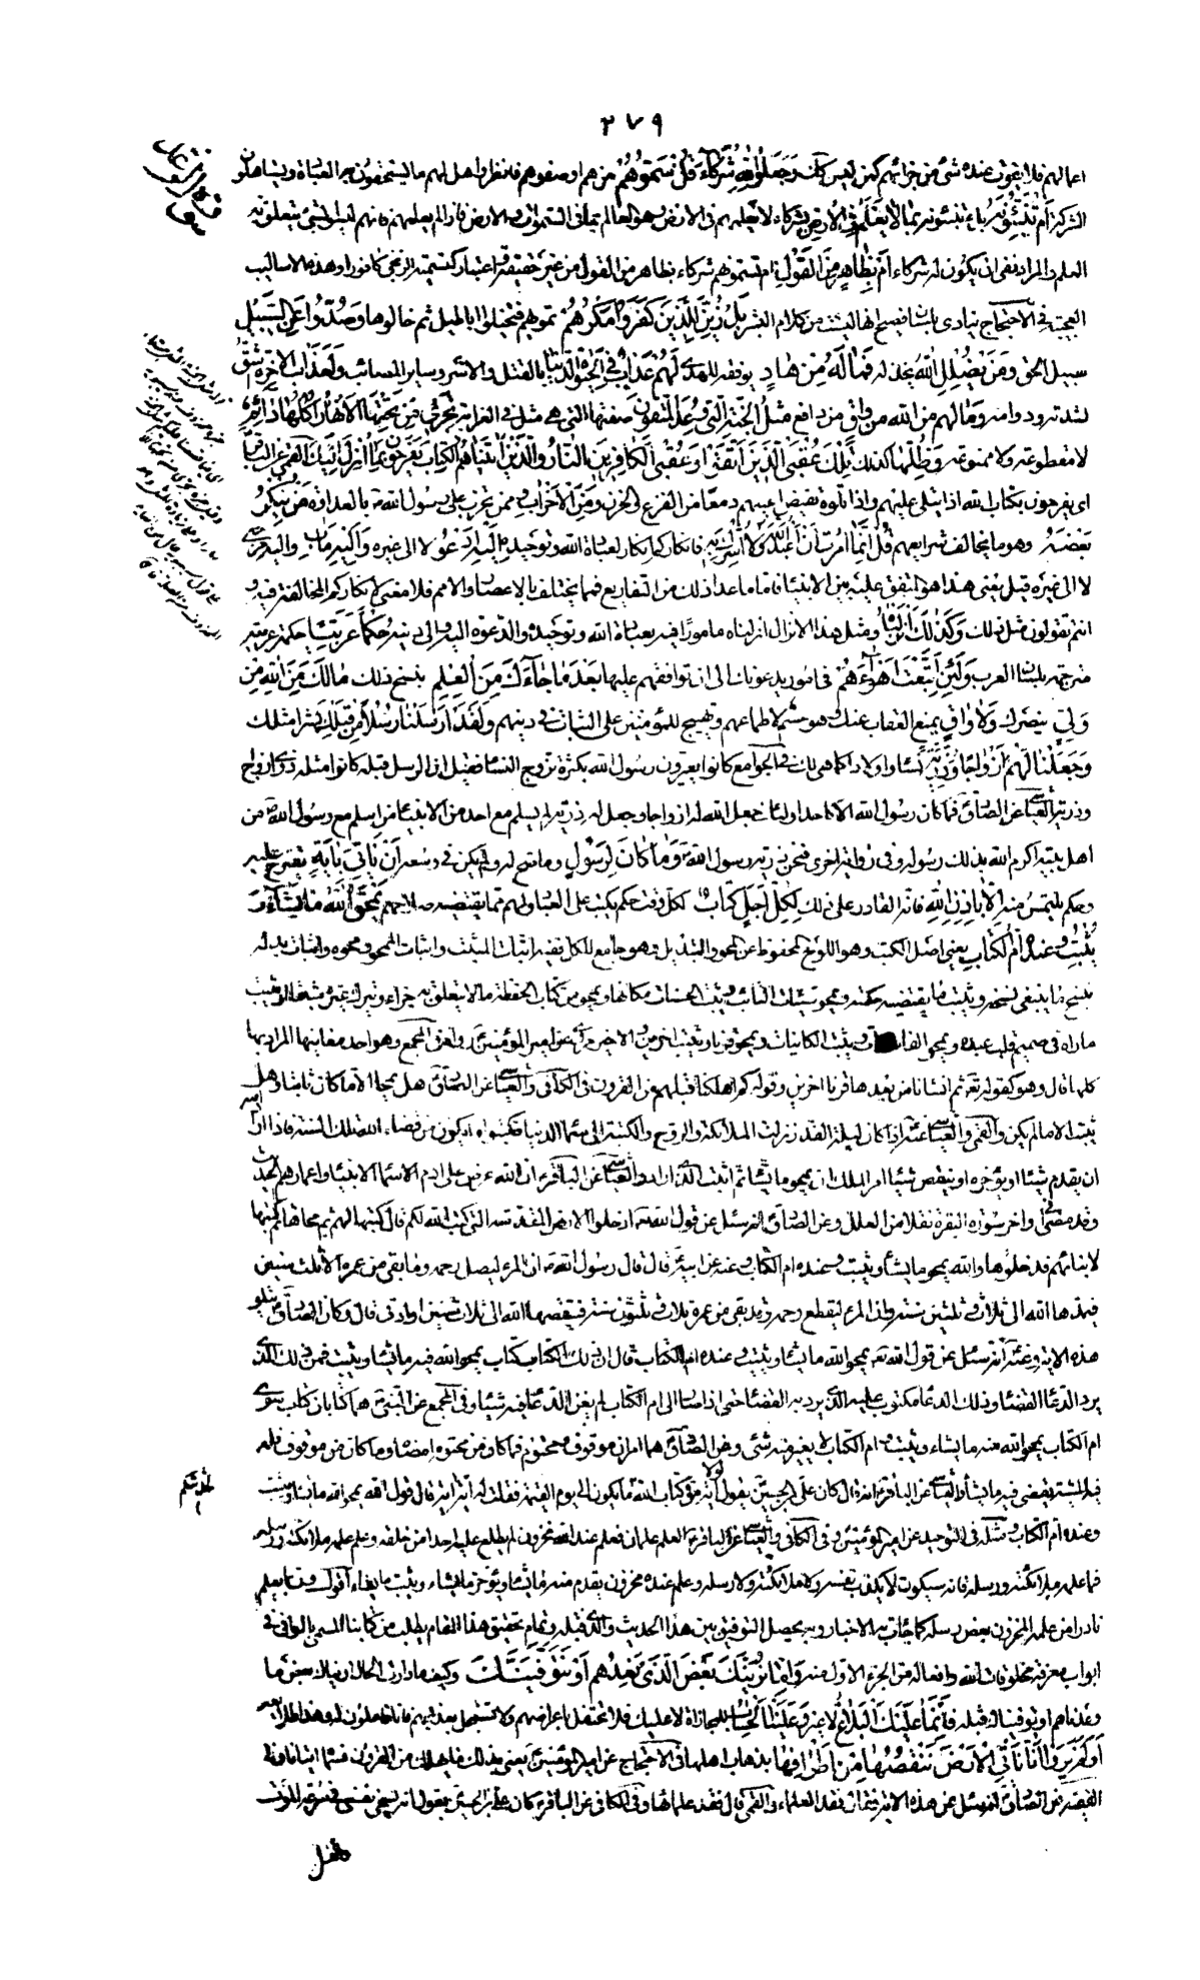 ٢٧٩
اعمالهم فلا يفوت عنده شئ من جزائهم كمن ليس كذلك وَجَعَلُوا لِلّٰهِ شُرَكَاءَ قُلْ سَمُّوهُمْ من هم او صفوهم فانظروا هل لهم ما يستحقون به العبادة ويستاهلون
الشركة أَمْ تُنَبِّئُونَهُ بل تنبئونه بِمَا لَا يَعْلَمُ فِي الْأَرْضِ بشركاء لا يعلمهم في الارض وهو العالم بما في السموات والارض فاذا لم يعلمهم فانهم ليسوا بشئ يتعلق به
العلم والمراد نفي ان يكون له شركاء أَمْ بِظَاهِرٍ مِنَ الْقَوْلِ ام تسمونهم شركاء بظاهر من القول من غير حقيقة واعتبار كتسمية الزنجي كافورا وهذه الاساليب
العجيبة في الاحتجاج ينادي بلسان فصيح انها ليست من كلام البشر بَلْ زُيِّنَ لِلَّذِينَ كَفَرُوا مَكْرُهُمْ تمويههم فتخيلوا اباطيل ثم خالوها وَصُدُّوا عَنِ السَّبِيلِ
سبيل الحق وَمَنْ يُضْلِلِ اللّٰهُ يخذله فَمَا لَهُ مِنْ هَادٍ يوفقه للهدى لَهُمْ عَذَابٌ فِي الْحَيٰوةِ الدُّنْيَا بالقتل والاسر وساير المصائب وَلَعَذَابُ الْآخِرَةِ أَشَقُّ
لشدته ودوامه وَمَا لَهُمْ مِنَ اللّٰهِ مِنْ وَاقٍ من دافع مَثَلُ الْجَنَّةِ الَّتِي وُعِدَ الْمُتَّقُونَ صفتها التي هي مثل في الغرابة تَجْرِي مِنْ تَحْتِهَا الْأَنْهَارُ أُكُلُهَا دَائِمٌ
لا مقطوعة ولا ممنوعة وَظِلُّهَا كذلك تِلْكَ عُقْبَى الَّذِينَ اتَّقَوْا وَعُقْبَى الْكَافِرِينَ النَّارُ وَالَّذِينَ آتَيْنَاهُمُ الْكِتَابَ يَفْرَحُونَ بِمَا أُنْزِلَ إِلَيْكَ
اي يفرحون بكتاب الله اذا يتلى عليهم واذا تلوه تفيض اعينهم دمعا من الفزع والحزن وَمِنَ الْأَحْزَابِ ممن تحزب على رسول الله بالعداوة مَنْ يُنْكِرُ
بَعْضَهُ وهو ما يخالف شرايعهم قُلْ إِنَّمَا أُمِرْتُ أَنْ أَعْبُدَ اللّٰهَ وَلَا أُشْرِكَ بِهِ فانكاركم انكار لعبادة الله وتوحيده إِلَيْهِ أَدْعُو لا الى غيره وَإِلَيْهِ مَآبِ واليه مرجعي
لا الى غيره قيل يعني هذا هو المتفق عليه بين الانبياء فاما ما عدا ذلك من التفاريع فمما يختلف بالاعصار والامم فلا معنى لانكاركم المخالفة فيه
انتم تقولون مثل ذلك وَكَذٰلِكَ أَنْزَلْنَاهُ ومثل هذا الانزال انزلناه مامورا فيه بعبادة الله وتوحيده والدعوة اليه والى دينه حُكْمًا عَرَبِيًّا حكمة عربية
مترجمة بلسان العرب وَلَئِنِ اتَّبَعْتَ أَهْوَاءَهُمْ في امور يدعونك الى ان توافقهم عليها بَعْدَ مَا جَاءَكَ مِنَ الْعِلْمِ بنسخ ذلك مَا لَكَ مِنَ اللّٰهِ مِنْ
وَلِيٍّ ينصرك وَلَا وَاقٍ يمنع العقاب عنك وهو حسم لاطماعهم وتهييج للمؤمنين على الثبات في دينهم وَلَقَدْ أَرْسَلْنَا رُسُلًا مِنْ قَبْلِكَ بشرا مثلك
وَجَعَلْنَا لَهُمْ أَزْوَاجًا وَذُرِّيَّةً نساء واولادا كما هي لك في الجوامع كانوا يعيرون رسول الله بكثرة تزوج النساء فقيل ان الرسل قبله كانوا مثله ذوي ازواج
وذرية العياشي عن الصادق فما كان رسول الله الا كاحد اولئك جعل الله له ازواجا وجعل له ذرية لم يسلم مع احد من الانبياء من اسلم مع رسول الله من
اهل بيته اكرم الله بذلك رسوله وفي رواية اخرى فنحن ذرية رسول الله وَمَا كَانَ لِرَسُولٍ وما صح له ولم يكن في وسعه أَنْ يَأْتِيَ بِآيَةٍ تقترح عليه
وحكم يلتمس منه إِلَّا بِإِذْنِ اللّٰهِ فانه القادر على ذلك لِكُلِّ أَجَلٍ كِتَابٌ لكل وقت حكم يكتب على العباد ولهم مما يقتضيه صلاحهم يَمْحُو اللّٰهُ مَا يَشَاءُ وَ
يُثْبِتُ وَعِنْدَهُ أُمُّ الْكِتَابِ يعني اصل الكتب وهو اللوح المحفوظ عن المحو والتبديل وهو جامع للكل ففيه اثبات المثبت واثبات الممحو ومحوه واثبات بدله
ينسخ ما ينبغي نسخه ويثبت ما يقتضيه حكمته ويمحو سيئات التائب ويثبت الحسنات مكانها ويمحو من كتاب الحفظة ما لا يتعلق به جزاء ويترك غيره مثبتا او يثبت
ما رآه في صميم قلب عبده ويمحو الفاسدات ويثبت الكائنات ويمحو قرنا ويثبت اخرين
كلها قال وهو كقوله ثم انشانا من بعدهم قرنا اخرين وقوله كم اهلكنا قبلهم من القرون في الكافي والعياشي عن الصادق هل يمحا الا ما كان ثابتا وهل
يثبت الا ما لم يكن والقمي والعياشي عنه اذا كان ليلة القدر نزلت الملائكة والروح والكتبة الى سماء الدنيا فيكتبون ما يكون من قضاء الله تلك السنة فاذا اراد
ان يقدم شيئا او يؤخره او ينقص شيئا امر الملك ان يمحو ما يشاء ثم اثبت الذي اراد والعياشي عن الباقر ان الله عرض على ادم اسماء الانبياء واعمارهم الحديث
وقد مضى في اواخر سورة البقرة نقلا من العلل وعن الصادق انه سئل عن قول الله ادخلوا الارض المقدسة التي كتب الله لكم قال كتبها لهم ثم محاها ثم كتبها
لابنائهم فدخلوها والله يمحو ما يشاء ويثبت وعنده ام الكتاب وعنه عن ابيه قال قال رسول الله ان المرء ليصل رحمه وما بقي من عمره الا ثلث سنين
فيمدها الله الى ثلاث وثلثين سنة وان المرء ليقطع رحمه وقد بقي من عمره ثلاث وثلثون سنة فينقصها الله الى ثلاث سنين او ادنى قال وكان الصادق يتلو
هذه الاية وعنه انه سئل عن قول الله يمحو الله ما يشاء ويثبت وعنده ام الكتاب قال ان ذلك الكتاب كتاب يمحو الله فيه ما يشاء ويثبت فمن ذلك الذي
يرد الدعاء القضاء وذلك الدعاء مكتوب عليه الذي يرد به القضاء حتى اذا صار الى ام الكتاب لم يغن الدعاء فيه شيئا وفي المجمع عن النبي هما كتابان كتاب سوى
ام الكتاب يمحو الله منه ما يشاء ويثبت وام الكتاب لا يغير منه شئ وعن الصادق هما امران موقوف ومحتوم فما كان من محتوم امضاه وما كان من موقوف فله
فيه المشية يقضي فيه ما يشاء والعياشي عن الباقر انه قال كان علي بن الحسين يقول لولا اية في كتاب الله لحدثتكم بما يكون الى يوم القيمة فقلت له اية اية قال قول الله يمحو الله ما يشاء ويثبت
وعنده ام الكتاب ومثله في التوحيد عن امير المؤمنين وفي الكافي والعياشي عن الباقر العلم علمان فعلم عند الله مخزون لم يطلع عليه احدا من خلقه وعلم علمه ملائكته ورسله
فما علمه ملائكته ورسله فانه سيكون لا يكذب نفسه ولا ملائكته ولا رسله وعلم عنده مخزون يقدم منه ما يشاء ويؤخر ما يشاء ويثبت ما يشاء اقول وربما يعلم
نادرا من علمه المخزون بعض رسله كما جاءت به الاخبار وبه يحصل التوفيق بين هذا الحديث والذي قبله وتمام تحقيق هذا المقام يطلب من كتابنا المسمى بالوافي في
ابواب معرفة مخلوقات الله وافعاله من الجزء الاول منه وَإِمَّا نُرِيَنَّكَ بَعْضَ الَّذِي نَعِدُهُمْ أَوْ نَتَوَفَّيَنَّكَ وكيف ما دارت الحال اريناك بعض ما
وعدناهم او توفيناك قبله فَإِنَّمَا عَلَيْكَ الْبَلَاغُ لا غير وَعَلَيْنَا الْحِسَابُ للمجازاة لا عليك فلا تحتفل باعراضهم ولا تستعجل بعذابهم فانا فاعلون له وهذا طلايعه
أَوَلَمْ يَرَوْا أَنَّا نَأْتِي الْأَرْضَ نَنْقُصُهَا مِنْ أَطْرَافِهَا بذهاب اهلها في الاحتجاج عن امير المؤمنين يعني بذلك ما يهلك من القرون فسماه اتيانا وفي
الفقيه عن الصادق انه سئل عن هذه الاية فقال فقد العلماء والقمي قال فقد علمائها وفي الكافي عن الباقر كان علي بن الحسين يقول انه يسخي نفسي في سرعة الموت